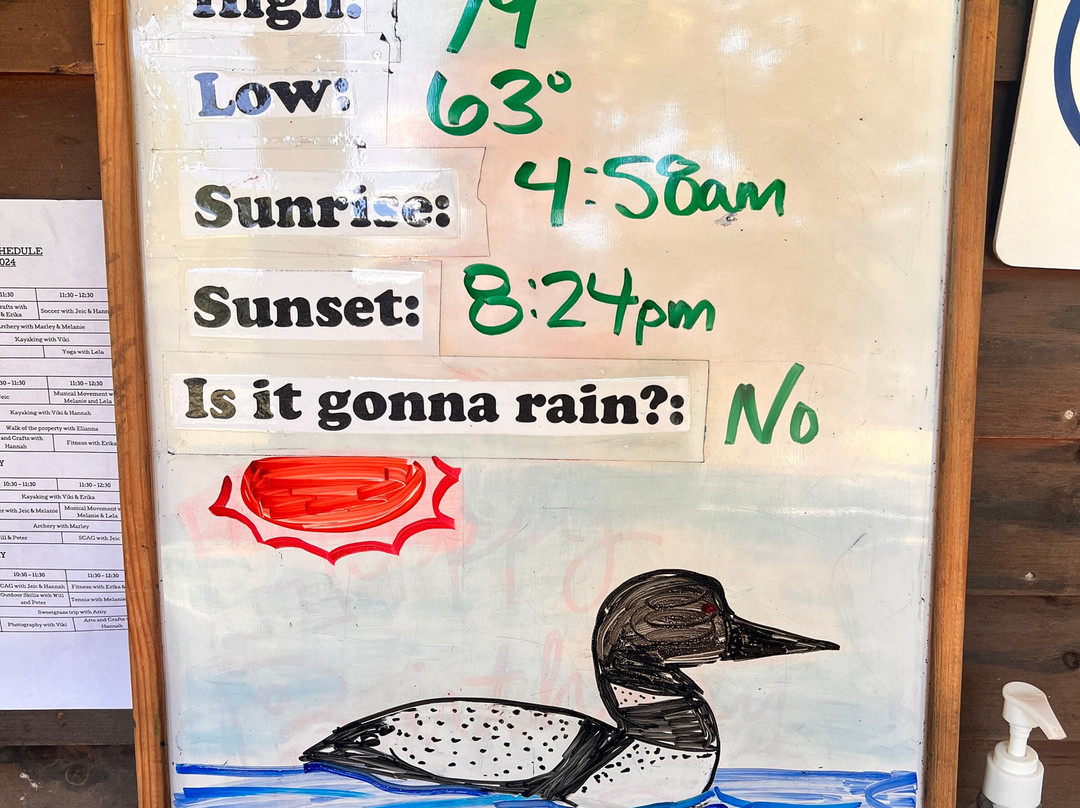 High: 79
Low: 63°
Sunrise: 4:58am
Sunset: 8:24pm
Is it gonna rain?: No
HEDULE
024
11:30 11:30 – 12:30
rafts with & Erika Soccer with Jeic & Hann
rchery with Marley & Melanie
Kayaking with Viki
Yoga with Lela
30 – 11:30 11:30 – 12:30
eic Musical Movement w
Melanie and Lela
Kayaking with Viki & Hannah
Walk of the property with Elianna
and Crafts with Hannah Fitness with Erika
Y
10:30 – 11:30 11:30 – 12:30
Kayaking with Viki & Erika
er with Jeic & Melanie Musical Movement w
Melanie & Lela
Archery with Marley
ill & Peter SCAG with Jeic
Y
10:30 – 11:30 11:30 – 12:30
CAG with Jeic & Hannah Fitness with Erika &
Outdoor Skills with Will and Peter Tennis with Melanie
Sweetgrass trip with Amy
Photography with Viki Arts and Crafts
Hannah